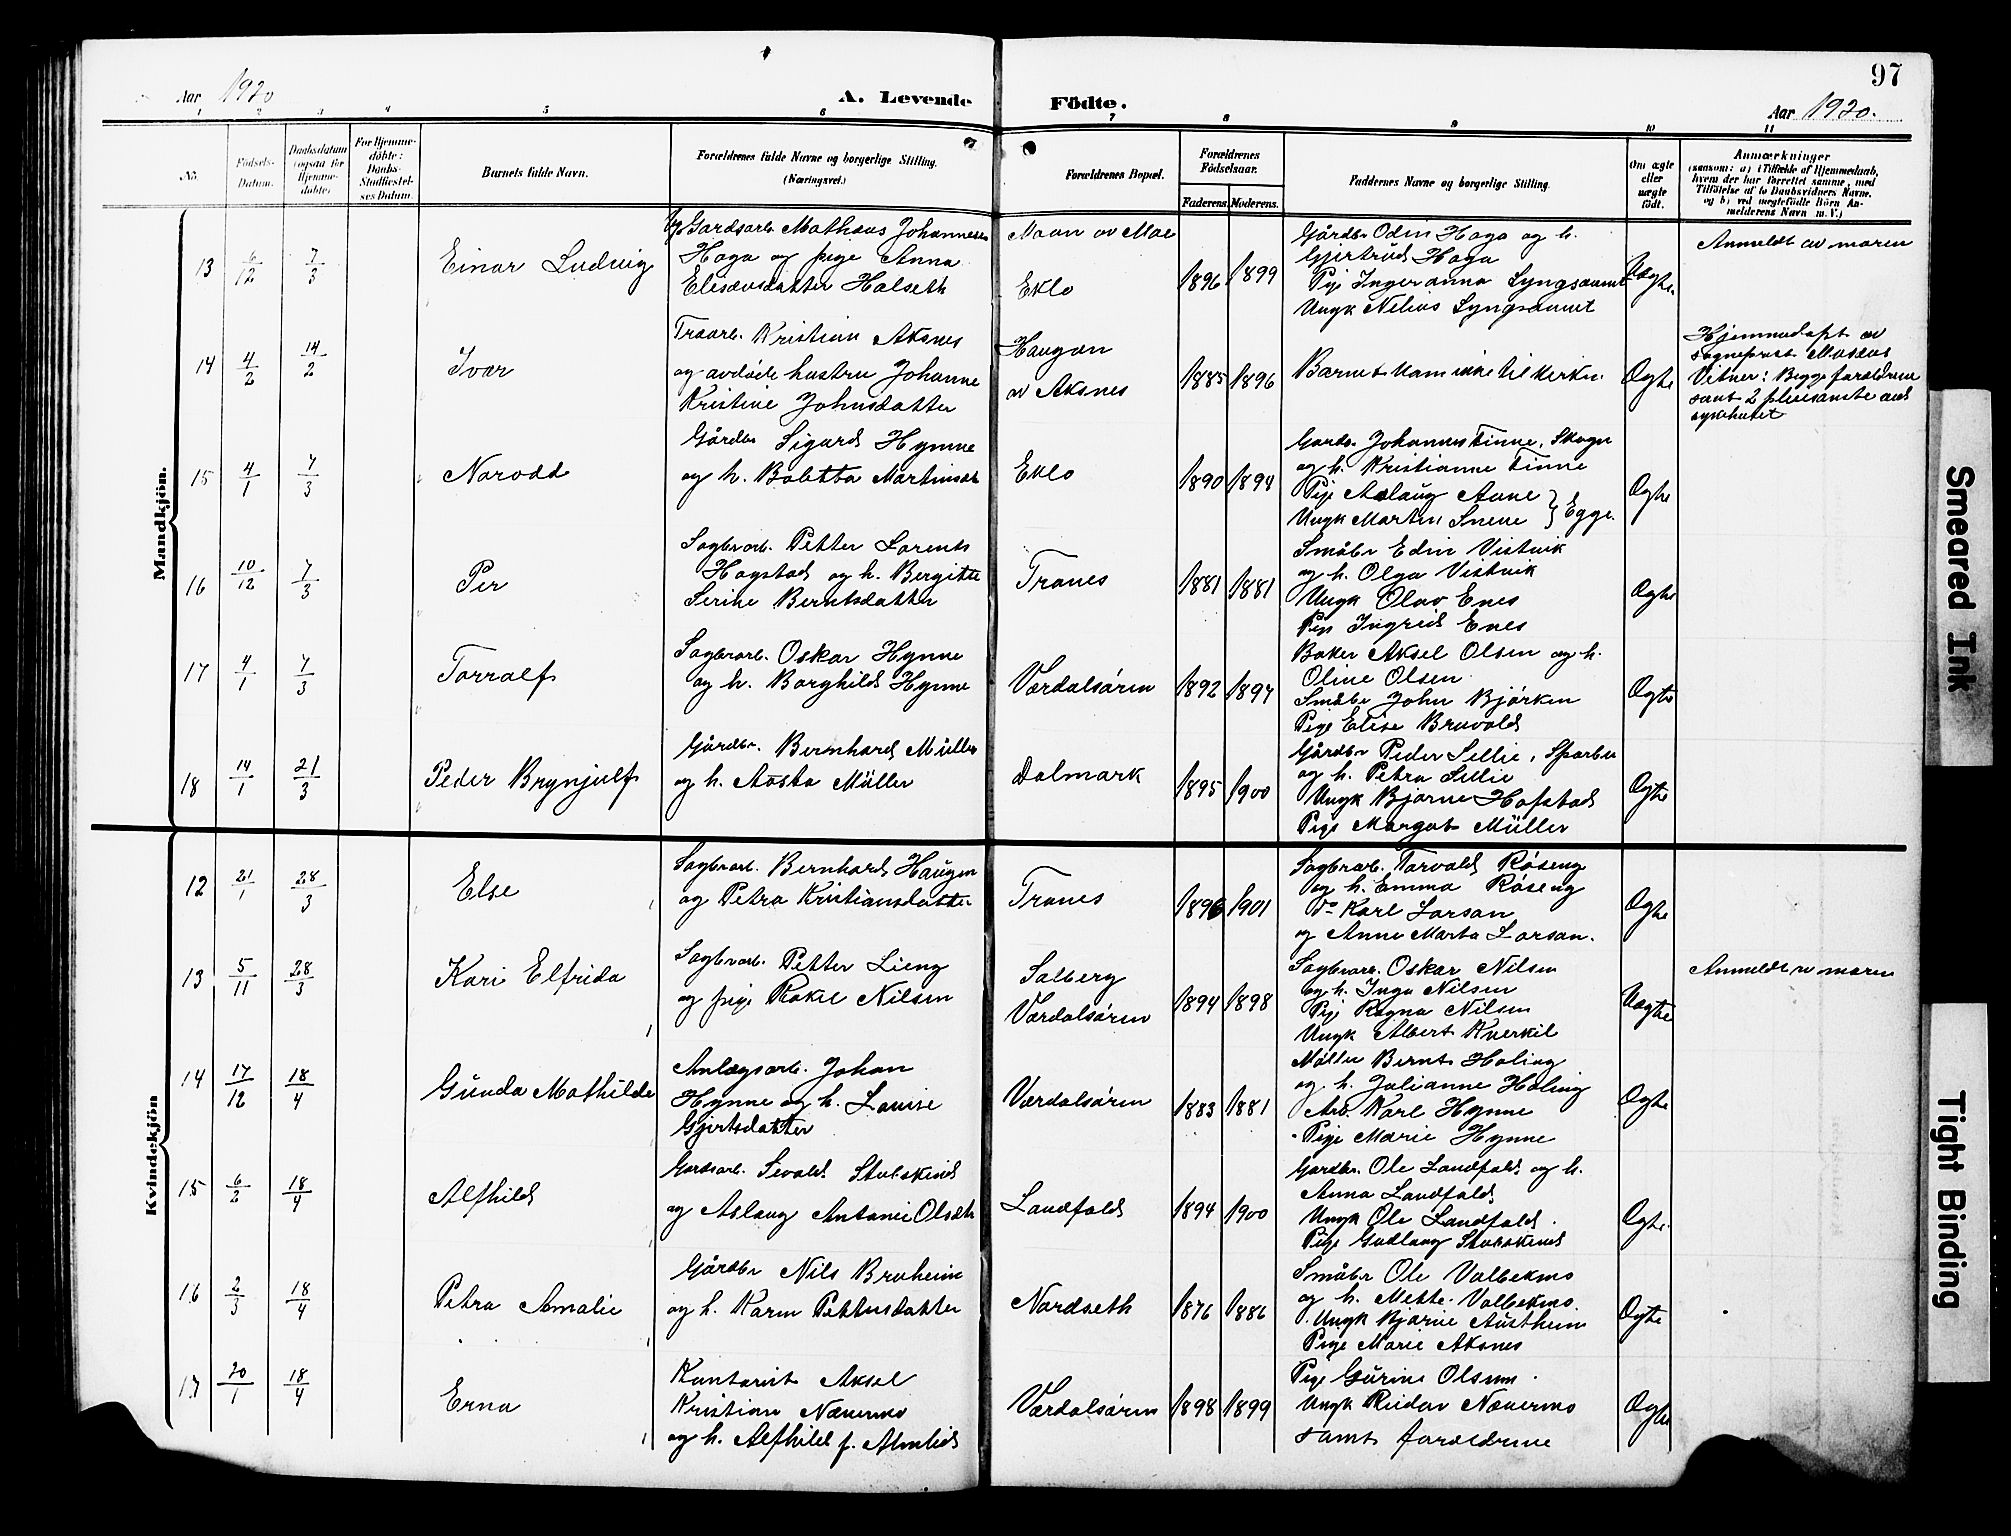 97
Aar 1920
A. Levende
Födte.
Aar 1920.
1 2 3 4 5 6 7 8 9 10 11
No.
Födsels-Datum.
Daabsdatum (ogsaa for Hjemmedøbte)
For Hjemmedöbte: Daabs-Stadfæstelses Datum.
Barnets fulde Navn.
Forældrenes fulde Navne og borgerlige Stilling. (Næringsvei.)
Forældrenes Bopæl.
Forældrenes Födselsaar.
Faderens. Moderens.
Faddernes Navne og borgerlige Stilling.
Om ægte eller uægte födt.
Anmærkninger
(saasom: a) i Tilfælde af Hjemmedaab, hvem der har forrettet samme, med Tilföielse af to Daabsvidners Navne, og b) ved uægtefödte Börn Anmelderens Navn m. V.)
Mandkjön.
13 6/12 7/3 Einar Ludvig
Gardsarb. Mathæus Johannesen
Haga og pige Anna
Elisæusdatter Halseth
Maan av Mæ
Eklo
1896 1899
Gårdbr. Odin Haga og h.
Gjertrud Haga
Pige Ingeranna Lyngsaunet
Ungk Nelius Lyngsaunet
Uægte.
Anmeldt av moren
14 4/2 14/2 Ivar
Kristian Aksnes
og avdøde hustru Johanne
Kristine Johnsdatter
Haugan
av Aksnes
1885 1896
Barnet kom ikke til kirken.
Ægte
Hjemmedøpt av
sogneprest Musæus
Vitner: Begge forældrene
samt 2 pleiersker ved
sykehuset
15 4/1 7/3 Narodd
Gårdbr Sigurd Hynne
og h. Boletta Martinsdt
Eklo
1890 1894
Gardbr. Johannes Tinne, Skogn
og h. Kristianne Tinne
Pige Aslaug Aune
Ungk Martin Snene } Egge.
Ægte
16 10/12 7/3 Per
Sagbrarb. Petter Lorents
Hagstad og h. Bergitte
Serine Berntsdatter
Tranes
1881 1881
Småbr Edin Vistvik
og h. Olga Vistvik
Ungk Olav Enes
Pige Ingrid Enes
Ægte
17 4/1 7/3 Torralf
Sagbrarb. Oskar Hynne
og h. Borghild Hynne
Værdalsøren
1892 1897
Baker Aksel Olsen og h.
Oline Olsen
Småbr John Bjørken
Pige Elise Bruvold
Ægte
18 14/1 21/3 Peder Brynjulf
Gårdbr. Bernhard Müller
og h. Aasta Müller
Dalmark
1895 1900
Gårdbr Peder Sellie, Sparbu
og h. Petra Sellie
Ungk Bjarne Hofstad
Pige Margot Müller
Ægte
Kvindekjön
12 21/1 28/3 Else
Sagbrarb. Bernhard Haugen
og Petra Kristiansdatter
Tranes
1896 1901
Sagbrarb. Torvald Røseng
og h. Emma Røseng
do Karl Larsen
og Anne Marta Larsen.
Ægte
13 5/11 28/3 Kari Elfrida
Sagbrarb. Petter Lieng
og pige Rakel Nilsen
Salberg
Værdalsøren
1894 1898
Sagbrarb. Oskar Nilsen
og h. Inga Nilsen
Pige Ragna Nilsen
Ungk Albert Kverkil
Uægte
Anmeldt av moren
14 17/12 18/4 Gunda Mathilde
Anlægsarb. Johan
Hynne og h. Louise
Gjertsdatter
Værdalsøren
1883 1881
Møller Bernt Holing
og h. Julianne Holing
Arb. Karl Hynne
Pige Marie Hynne
Ægte
15 6/2 18/4 Alfhild
Gardsarb. Sevald Stubskind
og Aslaug Antonie Olsdt
Landfald
1894 1900
Gardbr. Ole Landfald og h.
Anna Landfald
Ungk Ole Landfald.
Pige Gudlaug Stubskind
Ægte.
16 2/3 18/4 Petra Amalie
Gårdbr Nils Bruheim
og h. Karen Pettersdatter
Nordseth
1876 1886
Småbr Ole Valbekmo
og h. Mette Valbekmo.
Ungk Bjarne Austheim
Pige Marie Aksnes
Ægte
17 20/1 18/4 Erna
Kontorist Aksel
Kristian Nævermo
og h. Alfhild f. Almlid
Værdalsøren
1898 1899
Pige Gurine Olsen.
Ungk Reidar Nævermo
samt forældrene
Ægte
Smeared Ink
Tight Binding